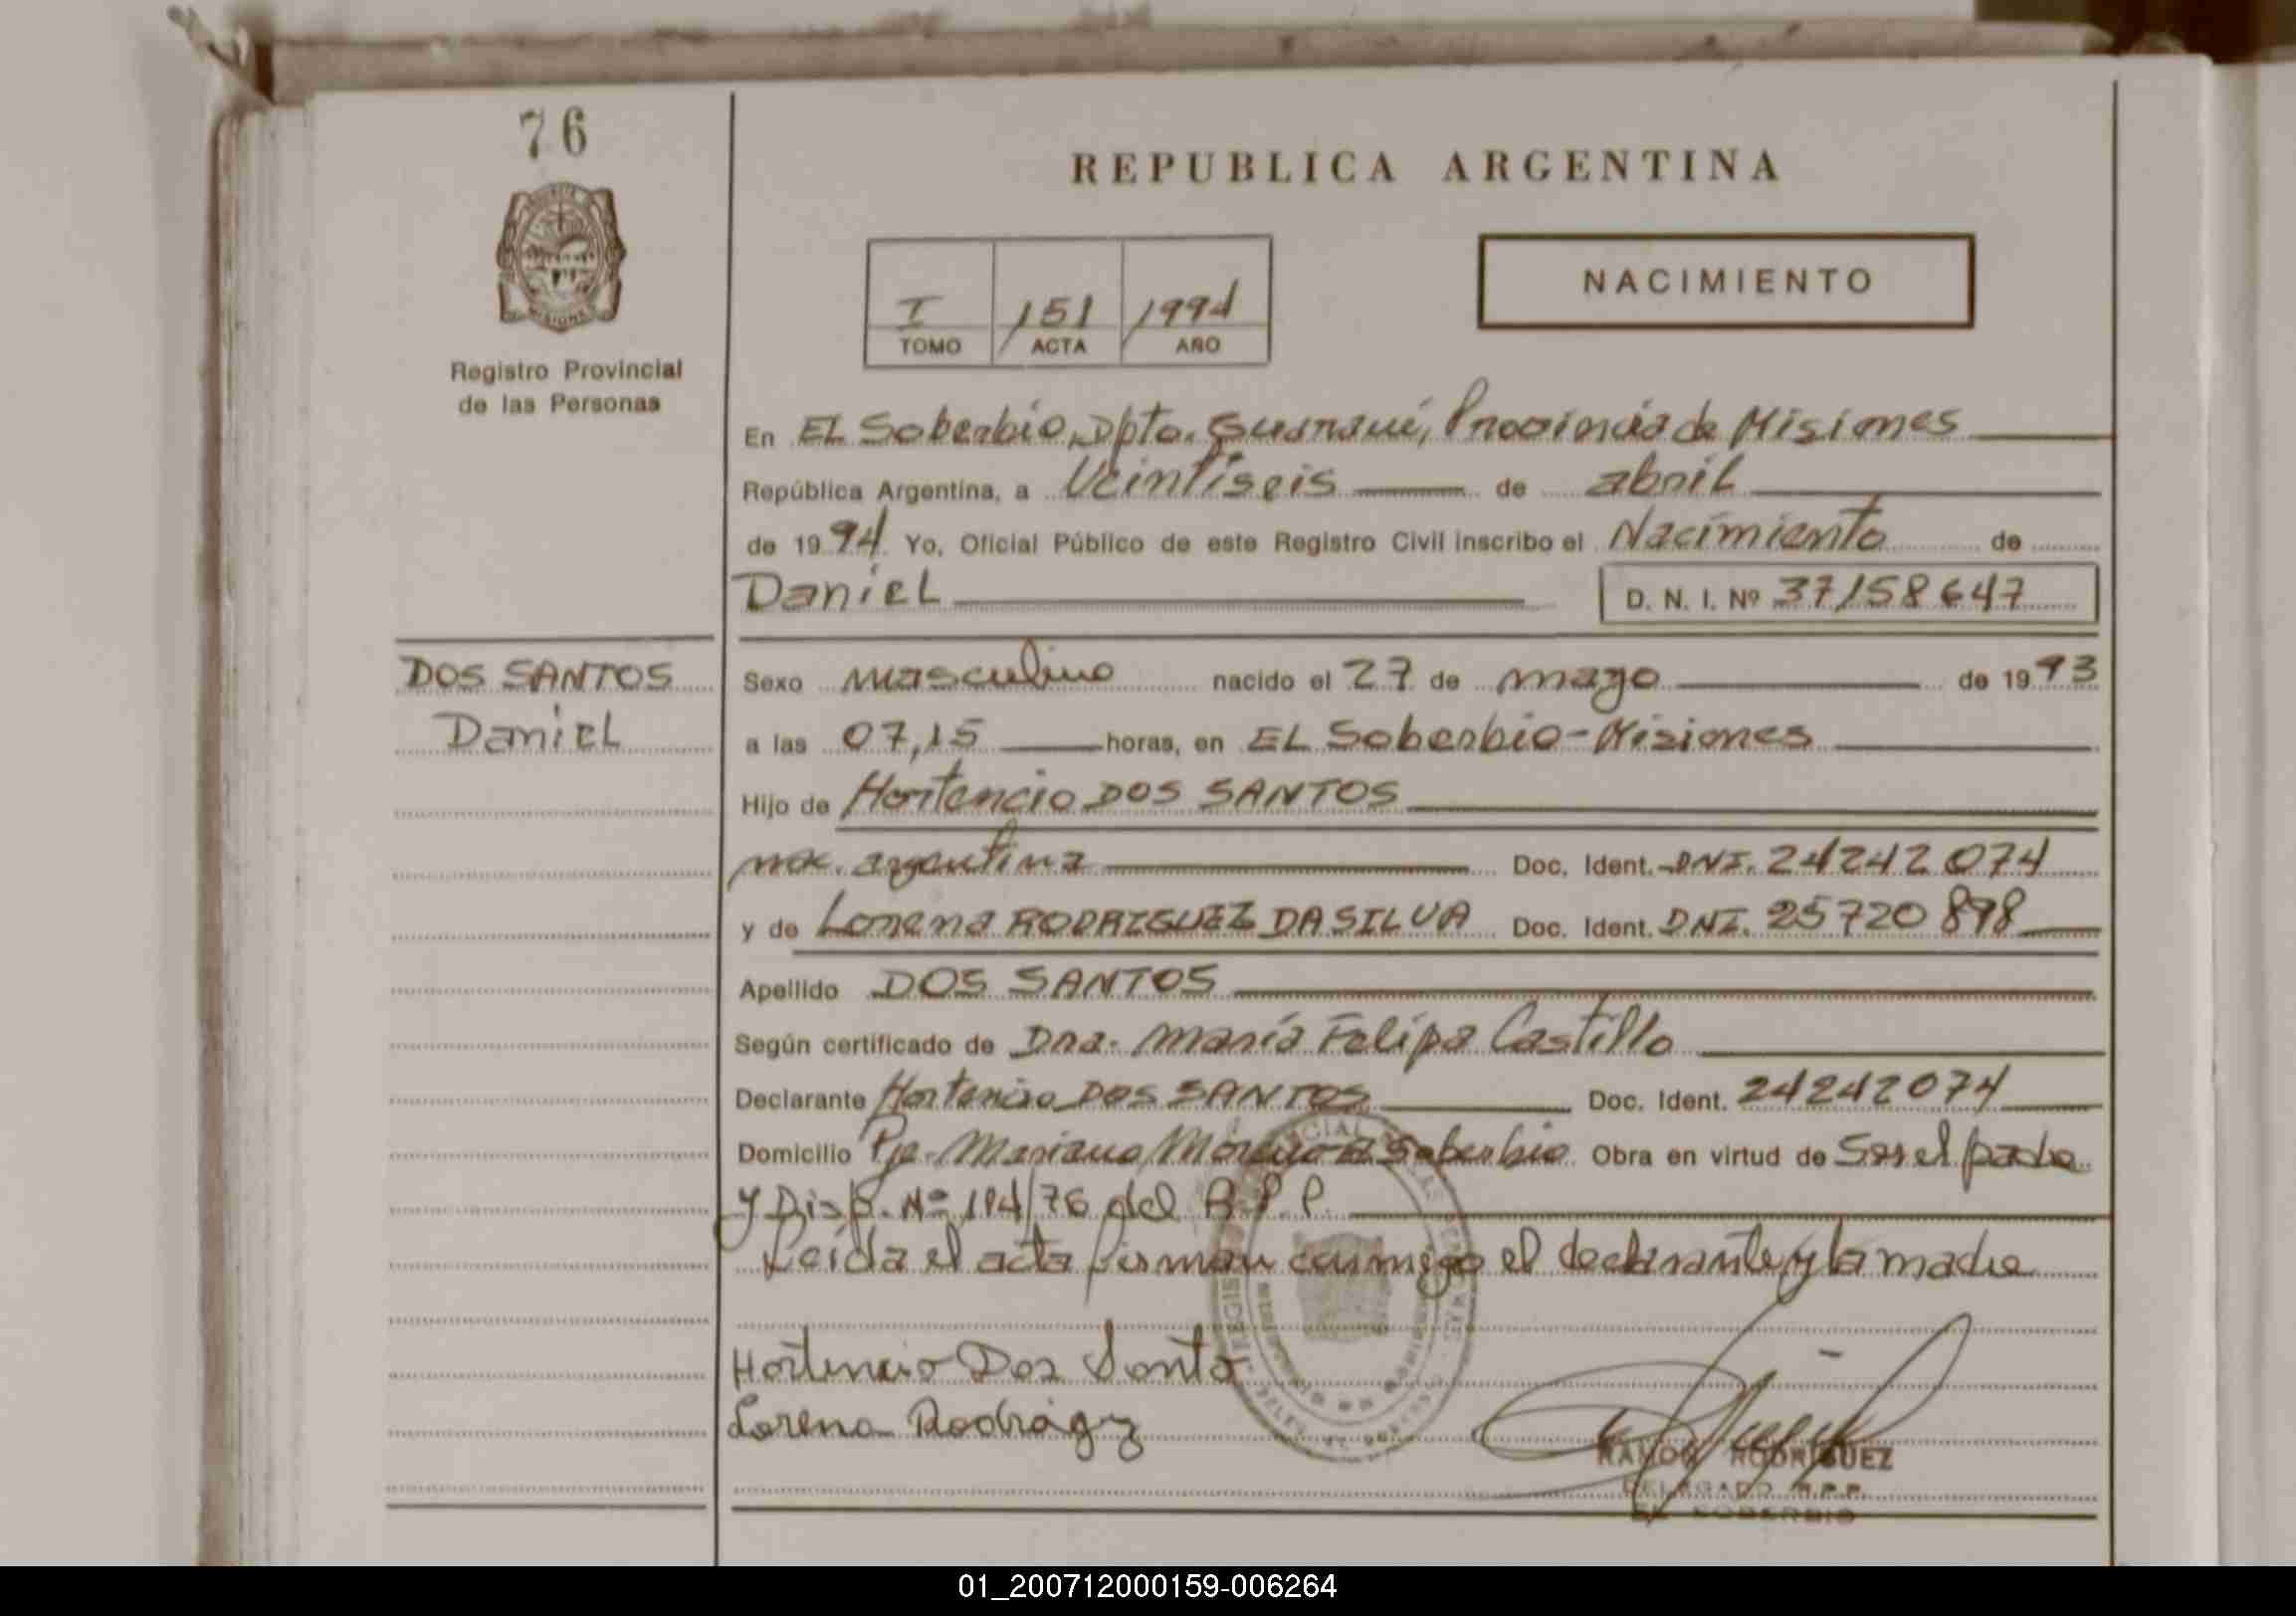 76
REPUBLICA ARGENTINA
NACIMIENTO
I 151 1994
TOMO ACTA AÑO
Registro Provincial
de las Personas
En EL Soberbio, Dpto. Guaraní, Provincia de Misiones
República Argentina, a Veintiseis de abril
de 1994 Yo, Oficial Público de este Registro Civil inscribo el Nacimiento de
Daniel D. N. I. Nº 37158647
DOS SANTOS
Daniel
Sexo masculino nacido el 27 de mayo de 1993
a las 07,15 horas, en EL Soberbio-Misiones
Hijo de Hortencio DOS SANTOS
nac. argentina Doc. Ident. DNI. 24242074
y de Lorena RODRIGUEZ DA SILVA Doc. Ident. DNI. 25720898
Apellido DOS SANTOS
Según certificado de Dra. María Felipa Castillo
Declarante Hortencio DOS SANTOS Doc. Ident. 24242074
Domicilio Pje. Mariano Moreno El Soberbio Obra en virtud de Ser el padre
y Disp. Nº 114/76 del R.P.P.
Leida el acta firman conmigo el declarante y la madre
Hortencio Dos Santo
Lorena Rodrigz
RAMON RODRIGUEZ
DELEGADO R.P.P.
EL SOBERBIO
01_200712000159-006264